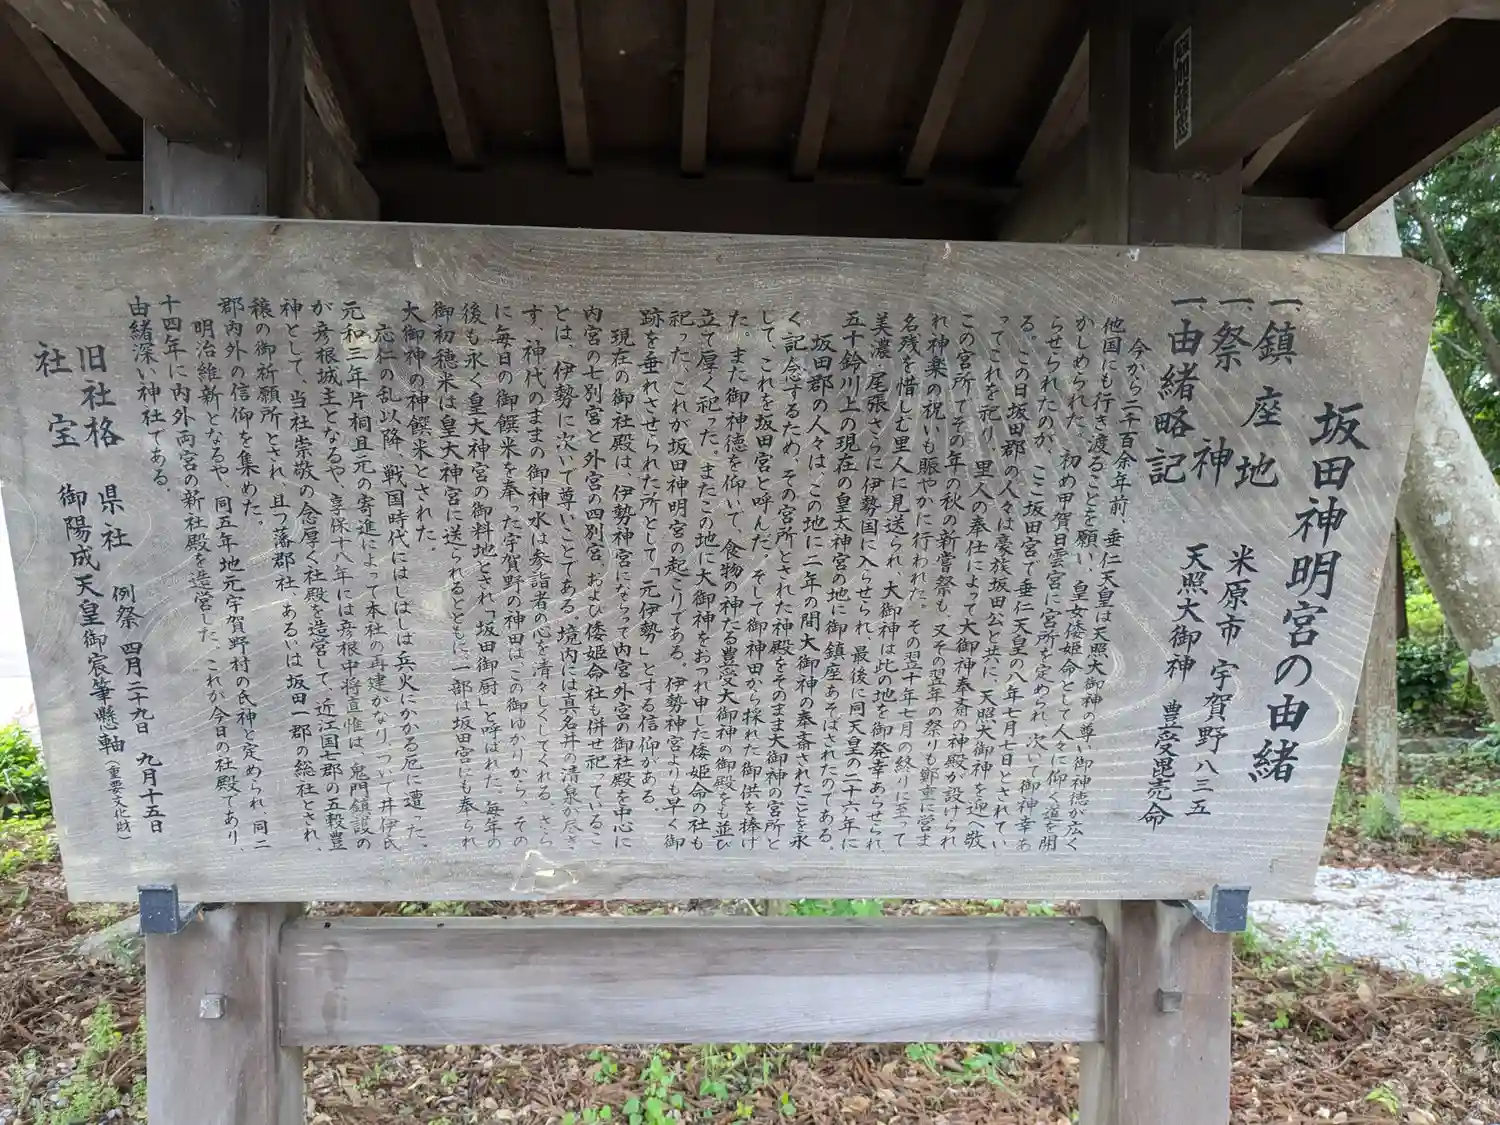 坂田神明宮の由緒
一、鎮座地 米原市 宇賀野八三五
一、祭神 天照大御神 豊受毘売命
一、由緒略記
今から二千百余年前、垂仁天皇は天照大御神の尊い御神徳が広く
他国にも行き渡ることを願い、皇女倭姫命として人々に仰ぐ道を開
かしめられた。初め甲賀日雲宮に宮所を定められ、次いで御神幸あ
らせられたのが、ここ坂田宮で垂仁天皇の八年七月七日とされてい
る。この日坂田郡の人々は豪族坂田公と共に、天照大御神を迎へ敬
ってこれを祀り、里人の奉仕によって大御神奉斎の神殿が設けられ
この宮所でその年の秋の新嘗祭も、又その翌年の祭りも鄭重に営ま
れ神楽の祝いも賑やかに行われた。その翌十年七月の終りに至って
名残を惜しむ里人に見送られ、大御神は此の地を御発幸あらせられ、
美濃、尾張さらに伊勢国に入らせられ、最後に同天皇の二十六年に
五十鈴川上の現在の皇大神宮の地に御鎮座あそばされたのである。
坂田郡の人々は、この地に二年の間大御神の奉斎されたことを永
く記念するため、その宮所とされた神殿をそのまま大御神の宮所と
して、これを坂田宮と呼んだ。そして御神田から採れた御供を捧げ
た。また御神徳を仰いで、食物の神たる豊受大御神の御殿をも並び
立て厚く祀った。またこの地に大御神をおつれ申した倭姫命の社も
祀った。これが坂田神明宮の起こりである。伊勢神宮よりも早く御
跡を垂れさせられた所として「元伊勢」とする信仰がある。
現在の御社殿は、伊勢神宮にならって内宮外宮の御社殿を中心に
内宮の七別宮と外宮の四別宮、および倭姫命社も併せ祀っているこ
とは、伊勢に次いで尊いことである。境内には真名井の清泉が尽き
す、神代のままの御神水は参詣者の心を清々しくしてくれる。さら
に毎日の御饌米を奉った宇賀野の神田はこの御ゆかりから、その
後も永く皇大神宮の御料地とされ「坂田御厨」と呼ばれた。毎年の
御初穂米は皇大神宮に送られるとともに、一部は坂田宮にも奉られ
大御神の神饌米とされた。
応仁の乱以降、戦国時代にはしばしば兵火にかかる厄に遭った。
元和三年片桐且元の寄進によって本社の再建がなり、ついで井伊氏
が彦根城主となるや、享保十八年には彦根中将直惟は、鬼門鎮護の
神として、当社崇敬の念厚く社殿を造営して、近江国七郡の五穀豊
穣の御祈願所とされ、且つ藩郡社、あるいは坂田一郡の総社とされ、
郡内外の信仰を集めた。
明治維新となるや、同五年地元宇賀野村の氏神と定められ、同二
十四年に内外両宮の新社殿を造営した。これが今日の社殿であり、
由緒深い神社である。
旧社格 県社 例祭 四月二十九日 九月十五日
社宝 御陽成天皇御宸筆懸軸(重要文化財)